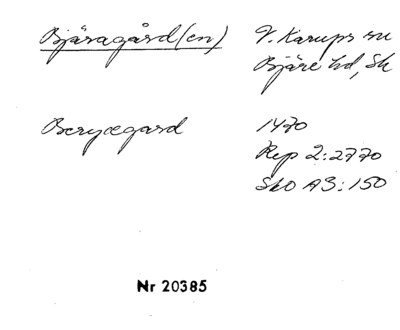 Bjäragård(en) V. Karups sn
Bjäre hd, Sk
Beryægard 1470
Rep 2:2770
SkO A3:150
Nr 20385